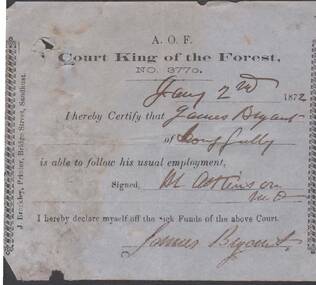 A. O. F.
Court King of the Forest,
NO. 3770.
Jany 2nd 1872
I hereby Certify that James Bryant
of Long Gully
is able to follow his usual employment,
Signed, M Atkinson
I hereby declare myself off the Funds of the above Court.
James Bryant.
J. Printer, Bridge Street, Sandhurst.